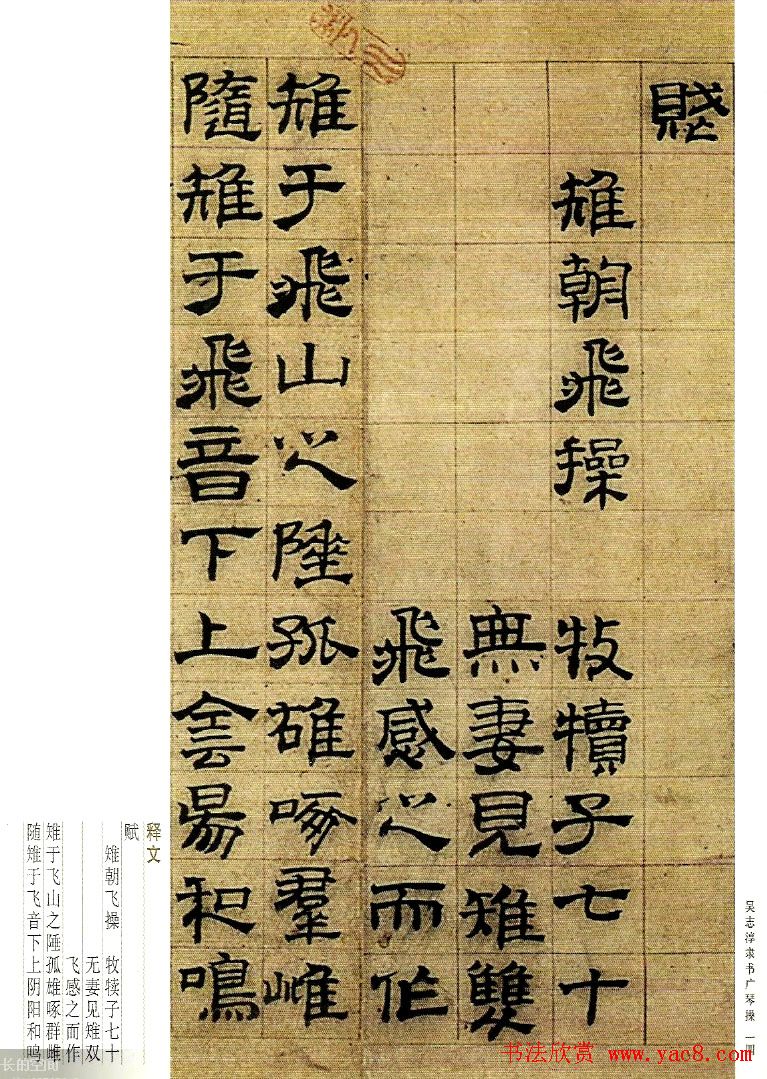 吴志淳隶书广琴操 一四
賦
雉朝飛操 牧犢子七十
無妻見雉雙
飛感之而作
雉于飛山之陲孤雄啄羣雌
隨雉于飛音下上侌昜和鳴
释文
赋
雉朝飞操 牧犊子七十
无妻见雉双
飞感之而作
雉于飞山之陲孤雄啄群雌
随雉于飞音下上阴阳和鸣
书法欣赏 www.yac8.com
长的空间